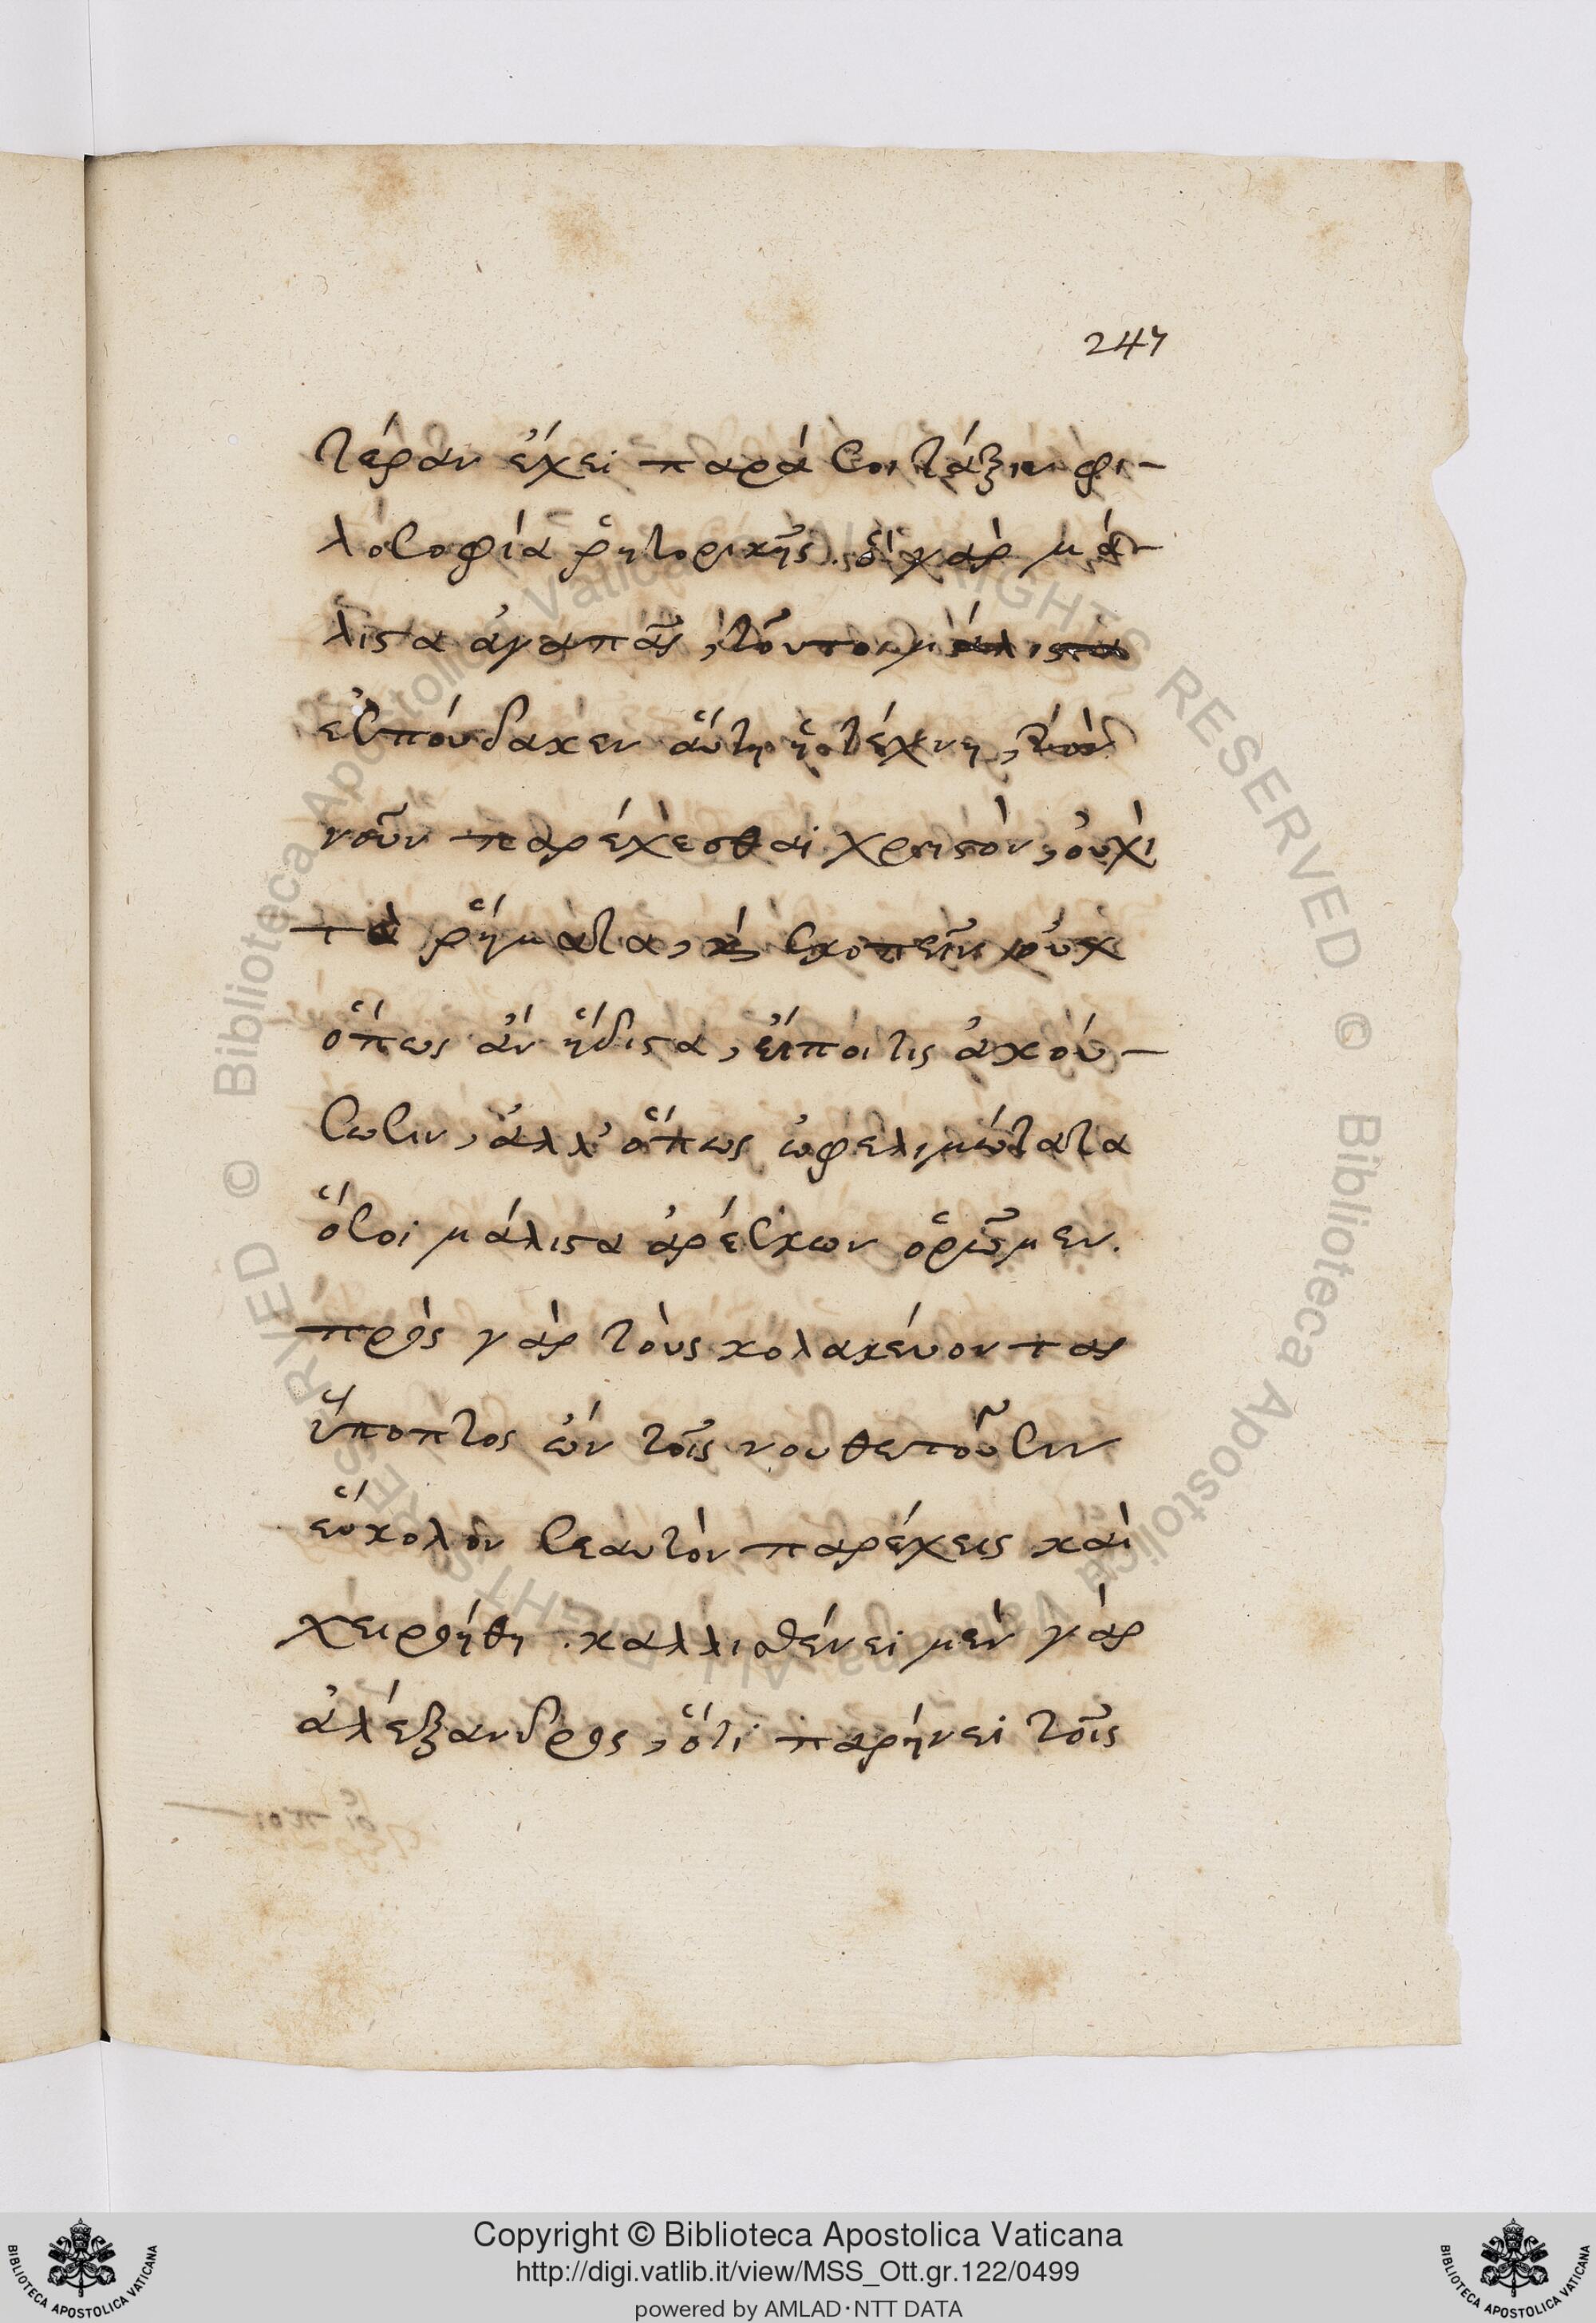 247
τέραν ἔχει παρά σοι τάξιν φι-
λοσοφία ῥητορικῆς. ὃ γὰρ μά-
λιστα ἀγαπᾷς, τοῦτο μάλιστα
ἐσπούδακεν αὕτη ἡ τέχνη, τὸν
νοῦν παρέχεσθαι χρηστὸν, οὐχὶ
τὰ ῥήματα, καὶ σκοπεῖν οὐχ
ὅπως ἂν ἥδιστα, εἴποι τις ἀκού-
σωσιν, ἀλλ' ὅπως ὠφελιμώτατα
ὅσοι μάλιστα ἀρέσκων ὁρῶμεν.
πρὸς γὰρ τοὺς κολακεύοντας
ὕποπτος ὢν τοῖς νουθετοῦσιν
εὔκολον σεαυτὸν παρέχεις καὶ
χειροήθη. καλλισθένει μὲν γὰρ
ἀλέξανδρος, ὅτι παρῄνει τοῖς
Copyright © Biblioteca Apostolica Vaticana
http://digi.vatlib.it/view/MSS_Ott.gr.122/0499
powered by AMLAD·NTT DATA
BIBLIOTECA APOSTOLICA VATICANA
BIBLIOTECA APOSTOLICA VATICANA